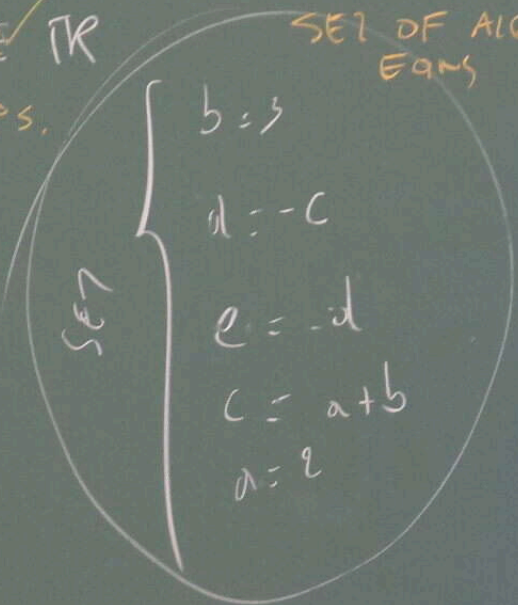 ∈ ℝ
PS.
SET OF ALG
EQNS
SET
b = 3
d = -c
e = -d
c = a+b
a = 2